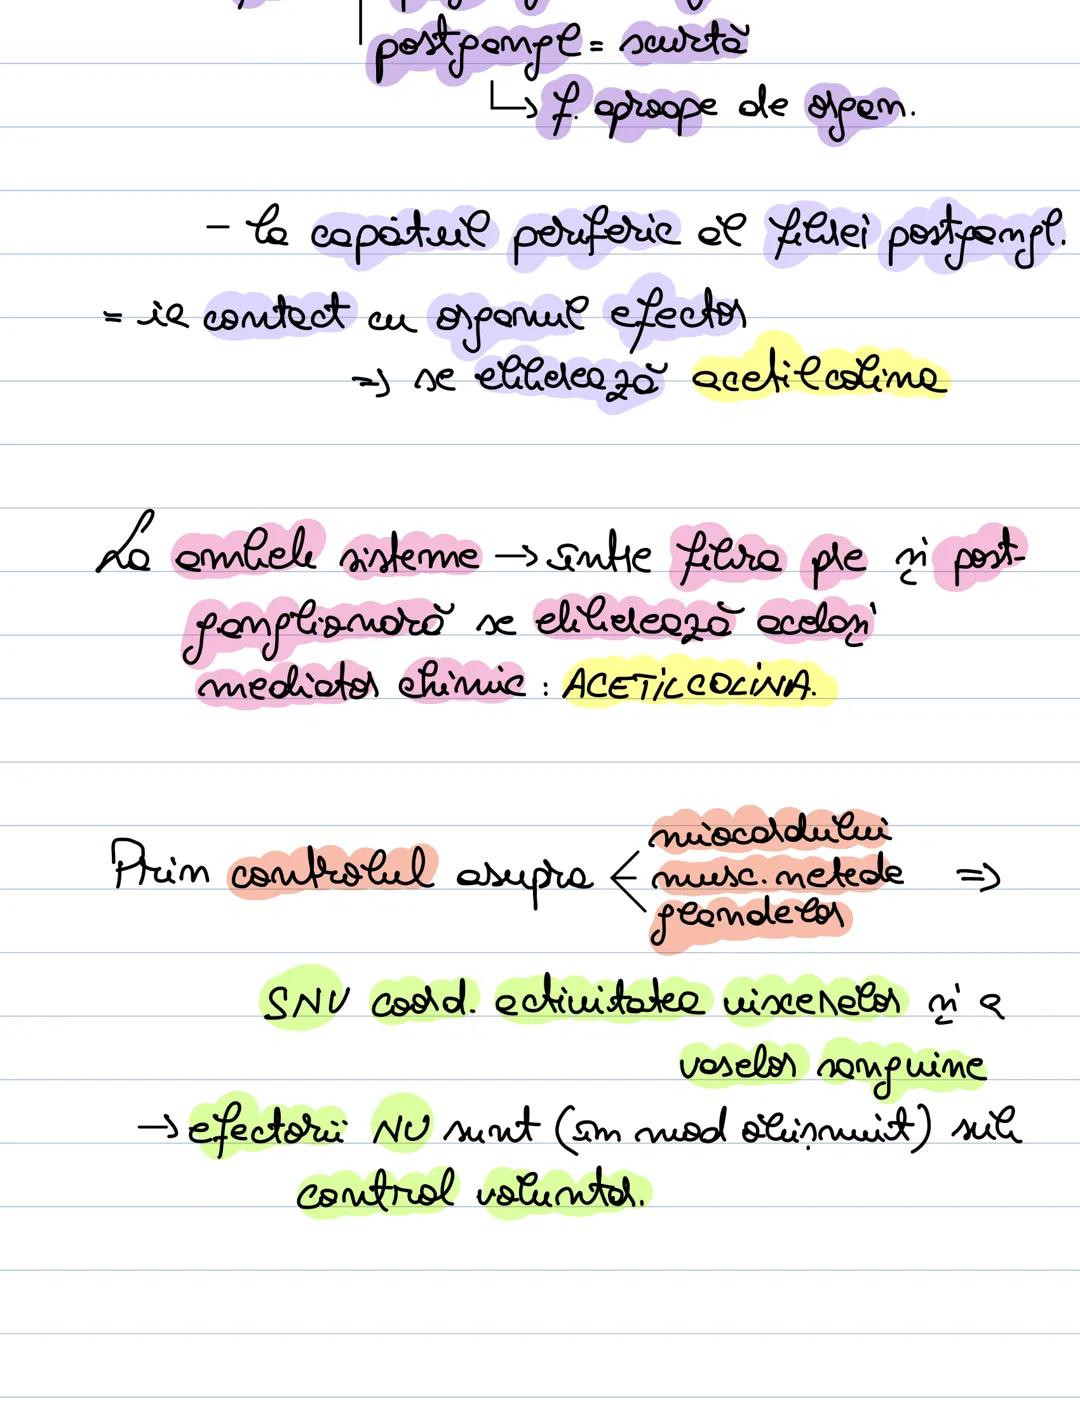 postgangl = scurtă
↳ f. aproape de organ.
- la capătul periferic al fibrei postgangl.
= ia contact cu organul efector
=> se eliberează acetilcolina
La ambele sisteme → între fibra pre și post-
ganglionară se eliberează același
mediator chimic : ACETILCOLINA.
miocardului
Prin controlul asupra < musc. netede =>
glandelor
SNV coord. activitatea viscerelor și a
vaselor sanguine
→ efectorii NU sunt (în mod obișnuit) sub
control voluntar.